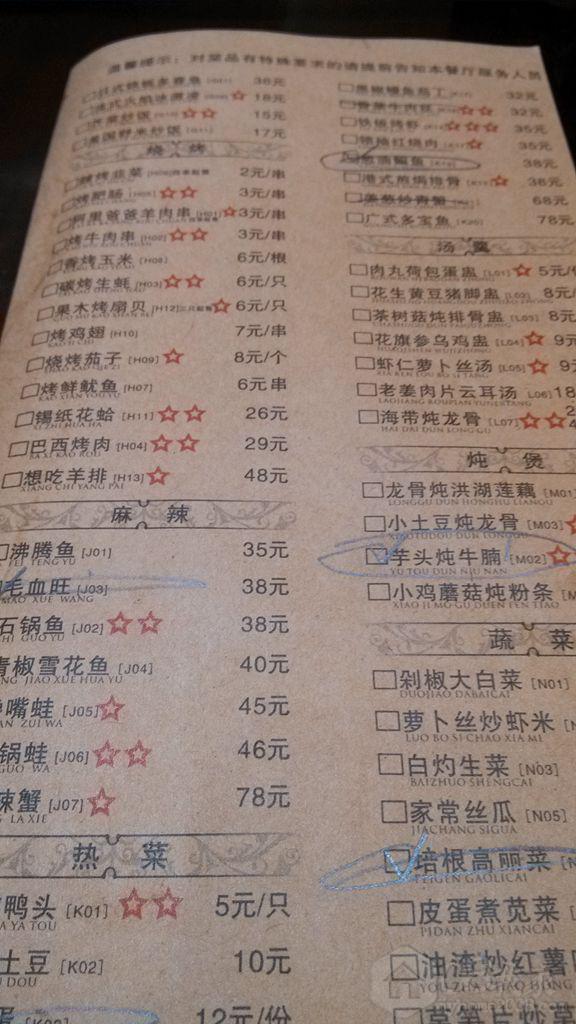 温馨提示：对菜品有特殊要求的请提前告知本餐厅服务人员
36元
18元
15元
17元
烧 烤
2元/串
烤肥肠 3元/串
羊肉串 [H01] 3元/串
烤牛肉串 [H02] 3元/串
香烤玉米 [H08] 6元/根
碳烤生蚝 [H03] 6元/只
果木烤扇贝 [H12] 6元/只
烤鸡翅 [H10] 7元/串
烧烤茄子 [H09] 8元/个
烤鲜鱿鱼 [H07] 6元串
锡纸花蛤 [H11] 26元
巴西烤肉 [H04] 29元
想吃羊排 [H13] 48元
XIANG CHI YANG PAI
麻 辣
沸腾鱼 [J01] 35元
FEI TENG YU
毛血旺 [J03] 38元
MAO XUE WANG
石锅鱼 [J02] 38元
SHI GUO YU
青椒雪花鱼 [J04] 40元
JIAO XUE HUA YU
嘴蛙 [J05] 45元
ZUI WA
锅蛙 [J06] 46元
GUO WA
辣蟹 [J07] 78元
LA XIE
热 菜
鸭头 [K01] 5元/只
YA TOU
土豆 [K02] 10元
DOU
12元/份
32元
32元
35元
红烧肉 35元
38元
港式煎焗排骨 36元
68元
广式多宝鱼 78元
汤 羹
肉丸荷包蛋盅 [L01] 5元/
花生黄豆猪脚盅 [L02] 8元/
茶树菇炖排骨盅 [L03] 8元/
花旗参乌鸡盅 [L04] 9元
虾仁萝卜丝汤 [L05] 9元
老姜肉片云耳汤 [L06] 18
海带炖龙骨 [L07]
HAI DAI DUN LONG GU
炖 煲
龙骨炖洪湖莲藕 [M01
LONGGU DUN HONGHU LIANOU
小土豆炖龙骨 [M03]
XIAOTUDOU DUN LONGGU
芋头炖牛腩 [M02]
YU TOU DUN NIU NAN
小鸡蘑菇炖粉条 [M
XIAO JI MO GU DUEN FEN TIAO
蔬 菜
剁椒大白菜 [N01]
DUOJIAO DABAICAI
萝卜丝炒虾米 [N
LUO BO SI CHAO XIA MI
白灼生菜 [N03]
BAIZHUO SHENGCAI
家常丝瓜 [N05]
JIACHANG SIGUA
培根高丽菜 [N
PEIGEN GAOLICAI
皮蛋煮苋菜 [N
PIDAN ZHU XIANCAI
油渣炒红薯
YOU ZHA CHAO HONG